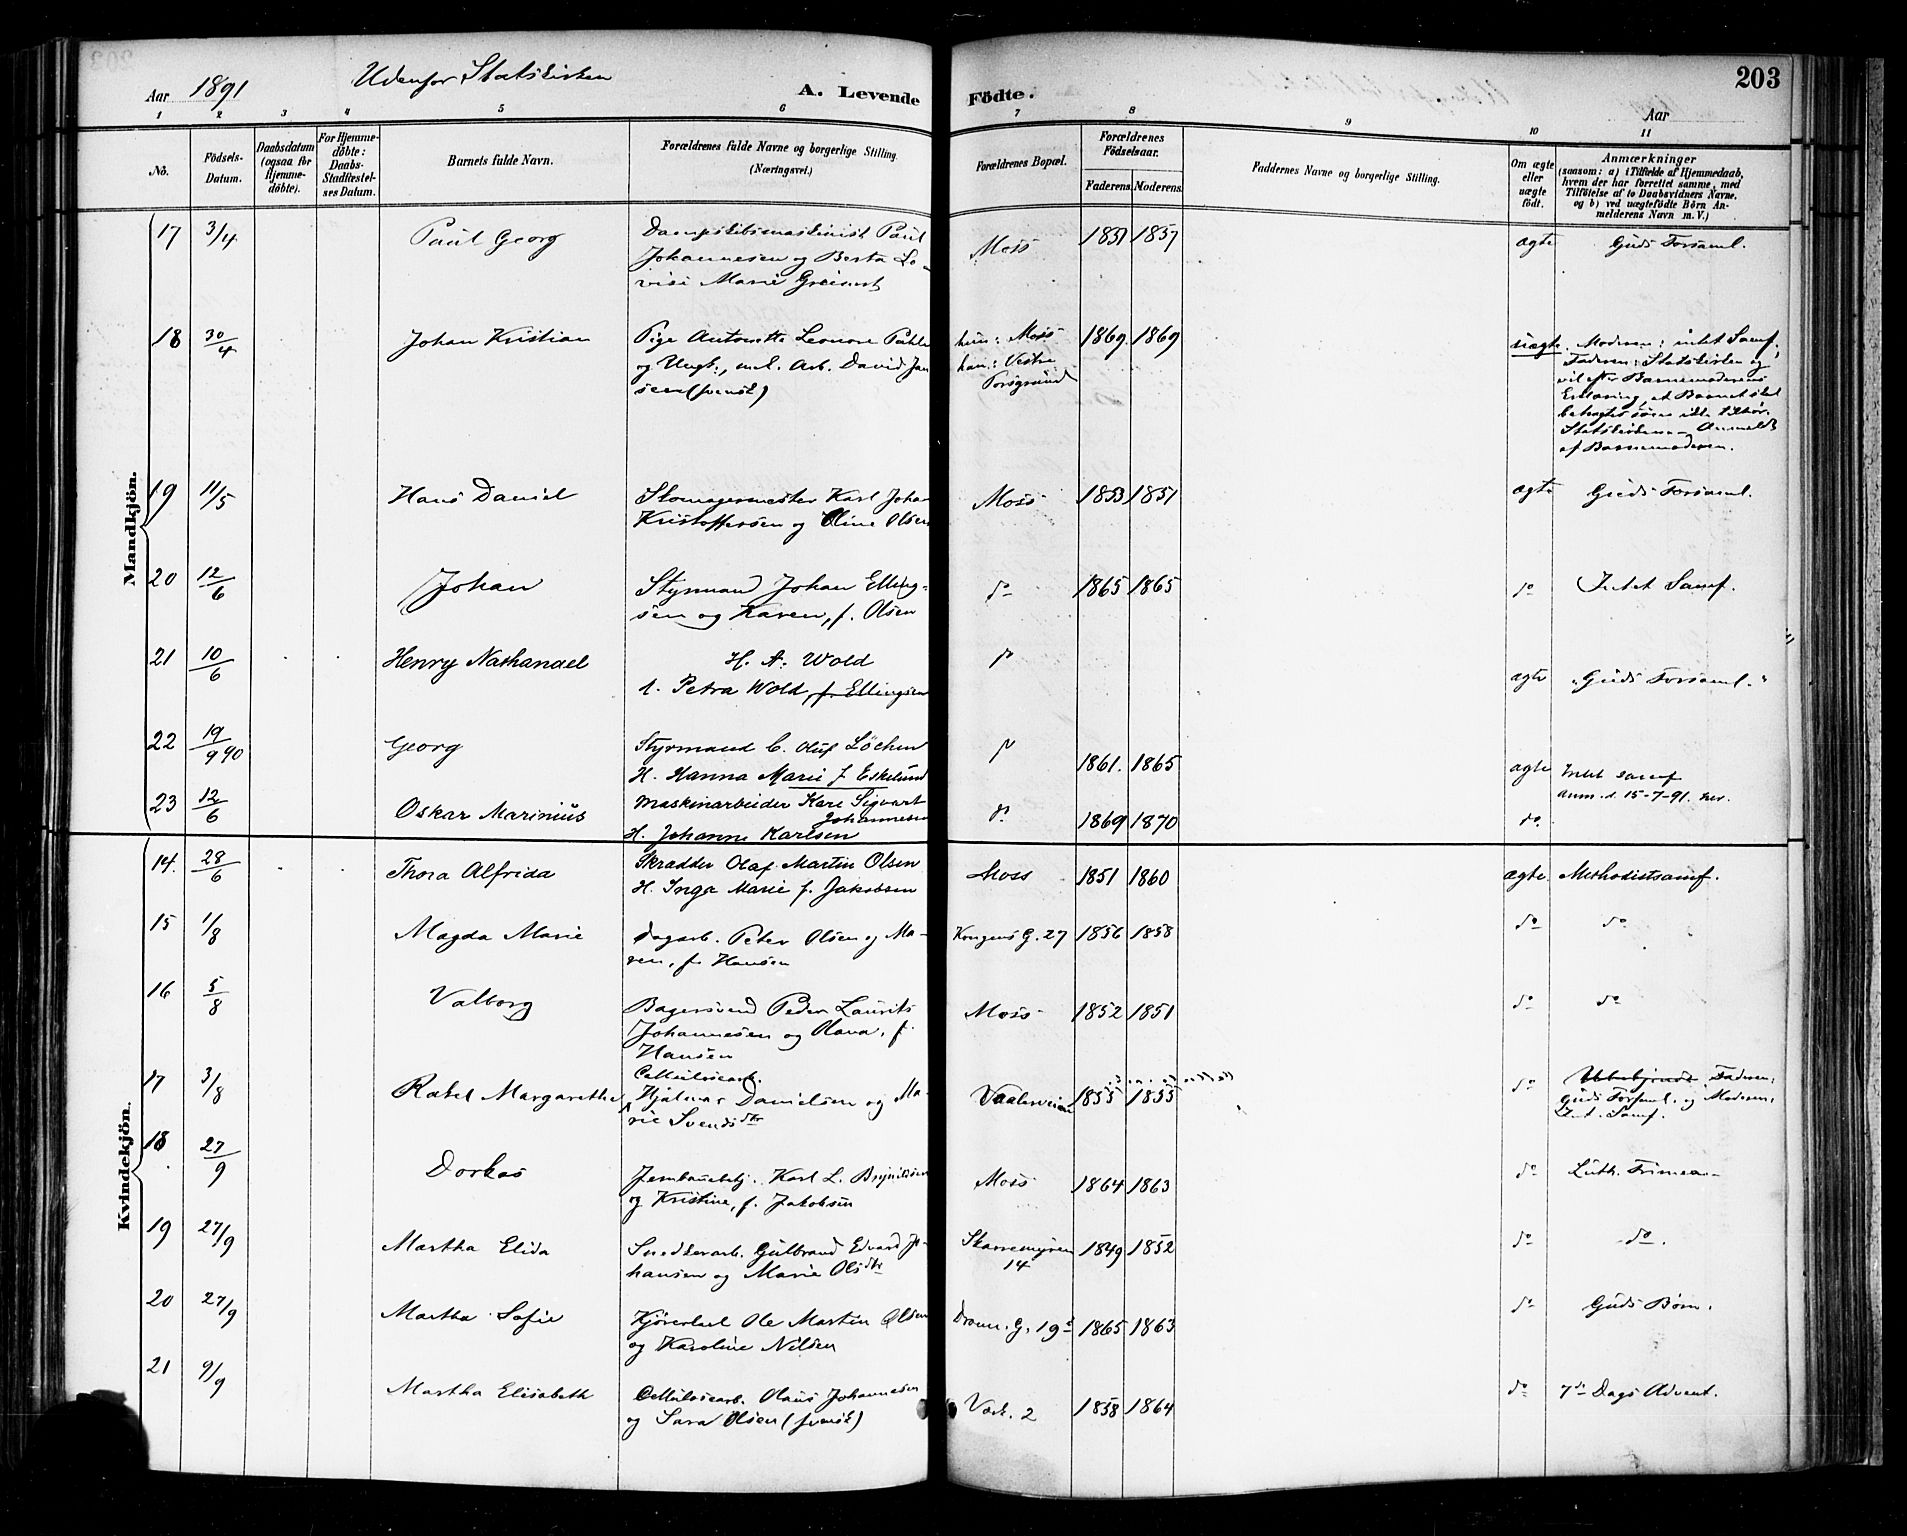 203
Aar 1891
Udenfor Statskirken
A. Levende Födte.
Aar
1 2 3 4 5 6 7 8 9 10 11
No.
Födsels-Datum.
Daabsdatum (ogsaa for Hjemmedöbte).
For Hjemmedöbte: Daabs-Stadfæstelses Datum.
Barnets fulde Navn.
Forældrenes fulde Navne og borgerlige Stilling.
(Næringsvei.)
Forældrenes Bopæl.
Forældrenes Födselsaar.
Faderens. Moderens.
Faddernes Navne og borgerlige Stilling.
Om ægte eller uægte födt.
Anmærkninger
(saasom: a) i Tilfælde af Hjemmedaab, hvem der har forrettet samme, med Tilföielse af to Daabsvidners Navne, og b) ved uægtefödte Börn Anmelderens Navn m. V.)
Mandkjön.
17 3/4 Paul Georg Dampskibsmaskinist Paul Moss 1851 1857 ægte Guds Forsaml.
Johannesen og Berta Lo-
visi Marie
18 30/4 Johan Kristian Pige Antonette Leonore hun: Moss 1869 1869 uægte. Moderen: intet Samf.
og Ungk., arb. David Jan han: Vestre Faderen: Statskirken og
sen (svensk) Porsgrund vil efter Barnemoderens
Erklæring, at Barnet skal
betragtes som ikke tilhør.
Statskirken - Anmeldt
af Barnemoderen.
19 11/5 Hans Daniel Skomagermester Karl Johan Moss 1853 1857 ægte Guds Forsaml.
Kristoffersen og Oline Olsen
20 12/6 Johan Styrmand Johan Elling- do 1865 1865 do Intet Samf.
sen og Karen, f. Olsen
21 10/6 Henry Nathanael H. A. Wold
Petra Wold, f. Ellingsen ægte "Guds Forsaml."
22 19/9 90 Georg Styrmand C. Oluf Löchen
H. Hanna Marie f Eskelund 1861. 1865 ægte Intet samf
anm. d. 15-7-91.
23 12/6 Oskar Marinius Maskinarbeider Karl Sigvart do 1869 1870 do.
Johannesen
H. Johanne Karlsen
Kvindekjön.
14. 28/6 Thora Alfrida Skrædder Olaf Martin Olsen Moss 1851 1860 ægte Methodistsamf.
H. Inga Marie f. Jakobsen
15 1/8 Magda Marie Dagarb. Peter Olsen og Ma- Kongens G. 27 1856 1858 do do
ren, f. Hansen
16 5/8 Valborg Bagersvend Peder Laurits Moss 1852 1851 do do
Johannesen og Olava, f.
Hansen
17 3/8 Rakel Margarethe Cellulosearb.
Hjalmar Danielsen og Ma- Vaaleveien 1855 1855 do Faderen:
rie Svendsdtr Guds Forsaml. og Moderen:
Int. Samf.
18 27/9 Dorkas Karl L. Moss 1864 1863 do Luth. Frimen.
og Kristine, f. Jakobsen
19 27/9 Martha Elida Snedkerarb. Gulbrand Edvard Jo- Skarremyren 1849 1852 do do.
hansen og Marie Olsdtr 14
20 27/9 Martha Sofie Kjörekarl Ole Martin Olsen Dronn. G. 19 1865 1863 do Guds Börn.
og Karoline Nilsen
21 9/9 Martha Elisabeth Cellulosearb. Olaus Johannesen Værk. 2 1858 1864 do 7de Dags Advent.
og Sara Olsen (svensk)